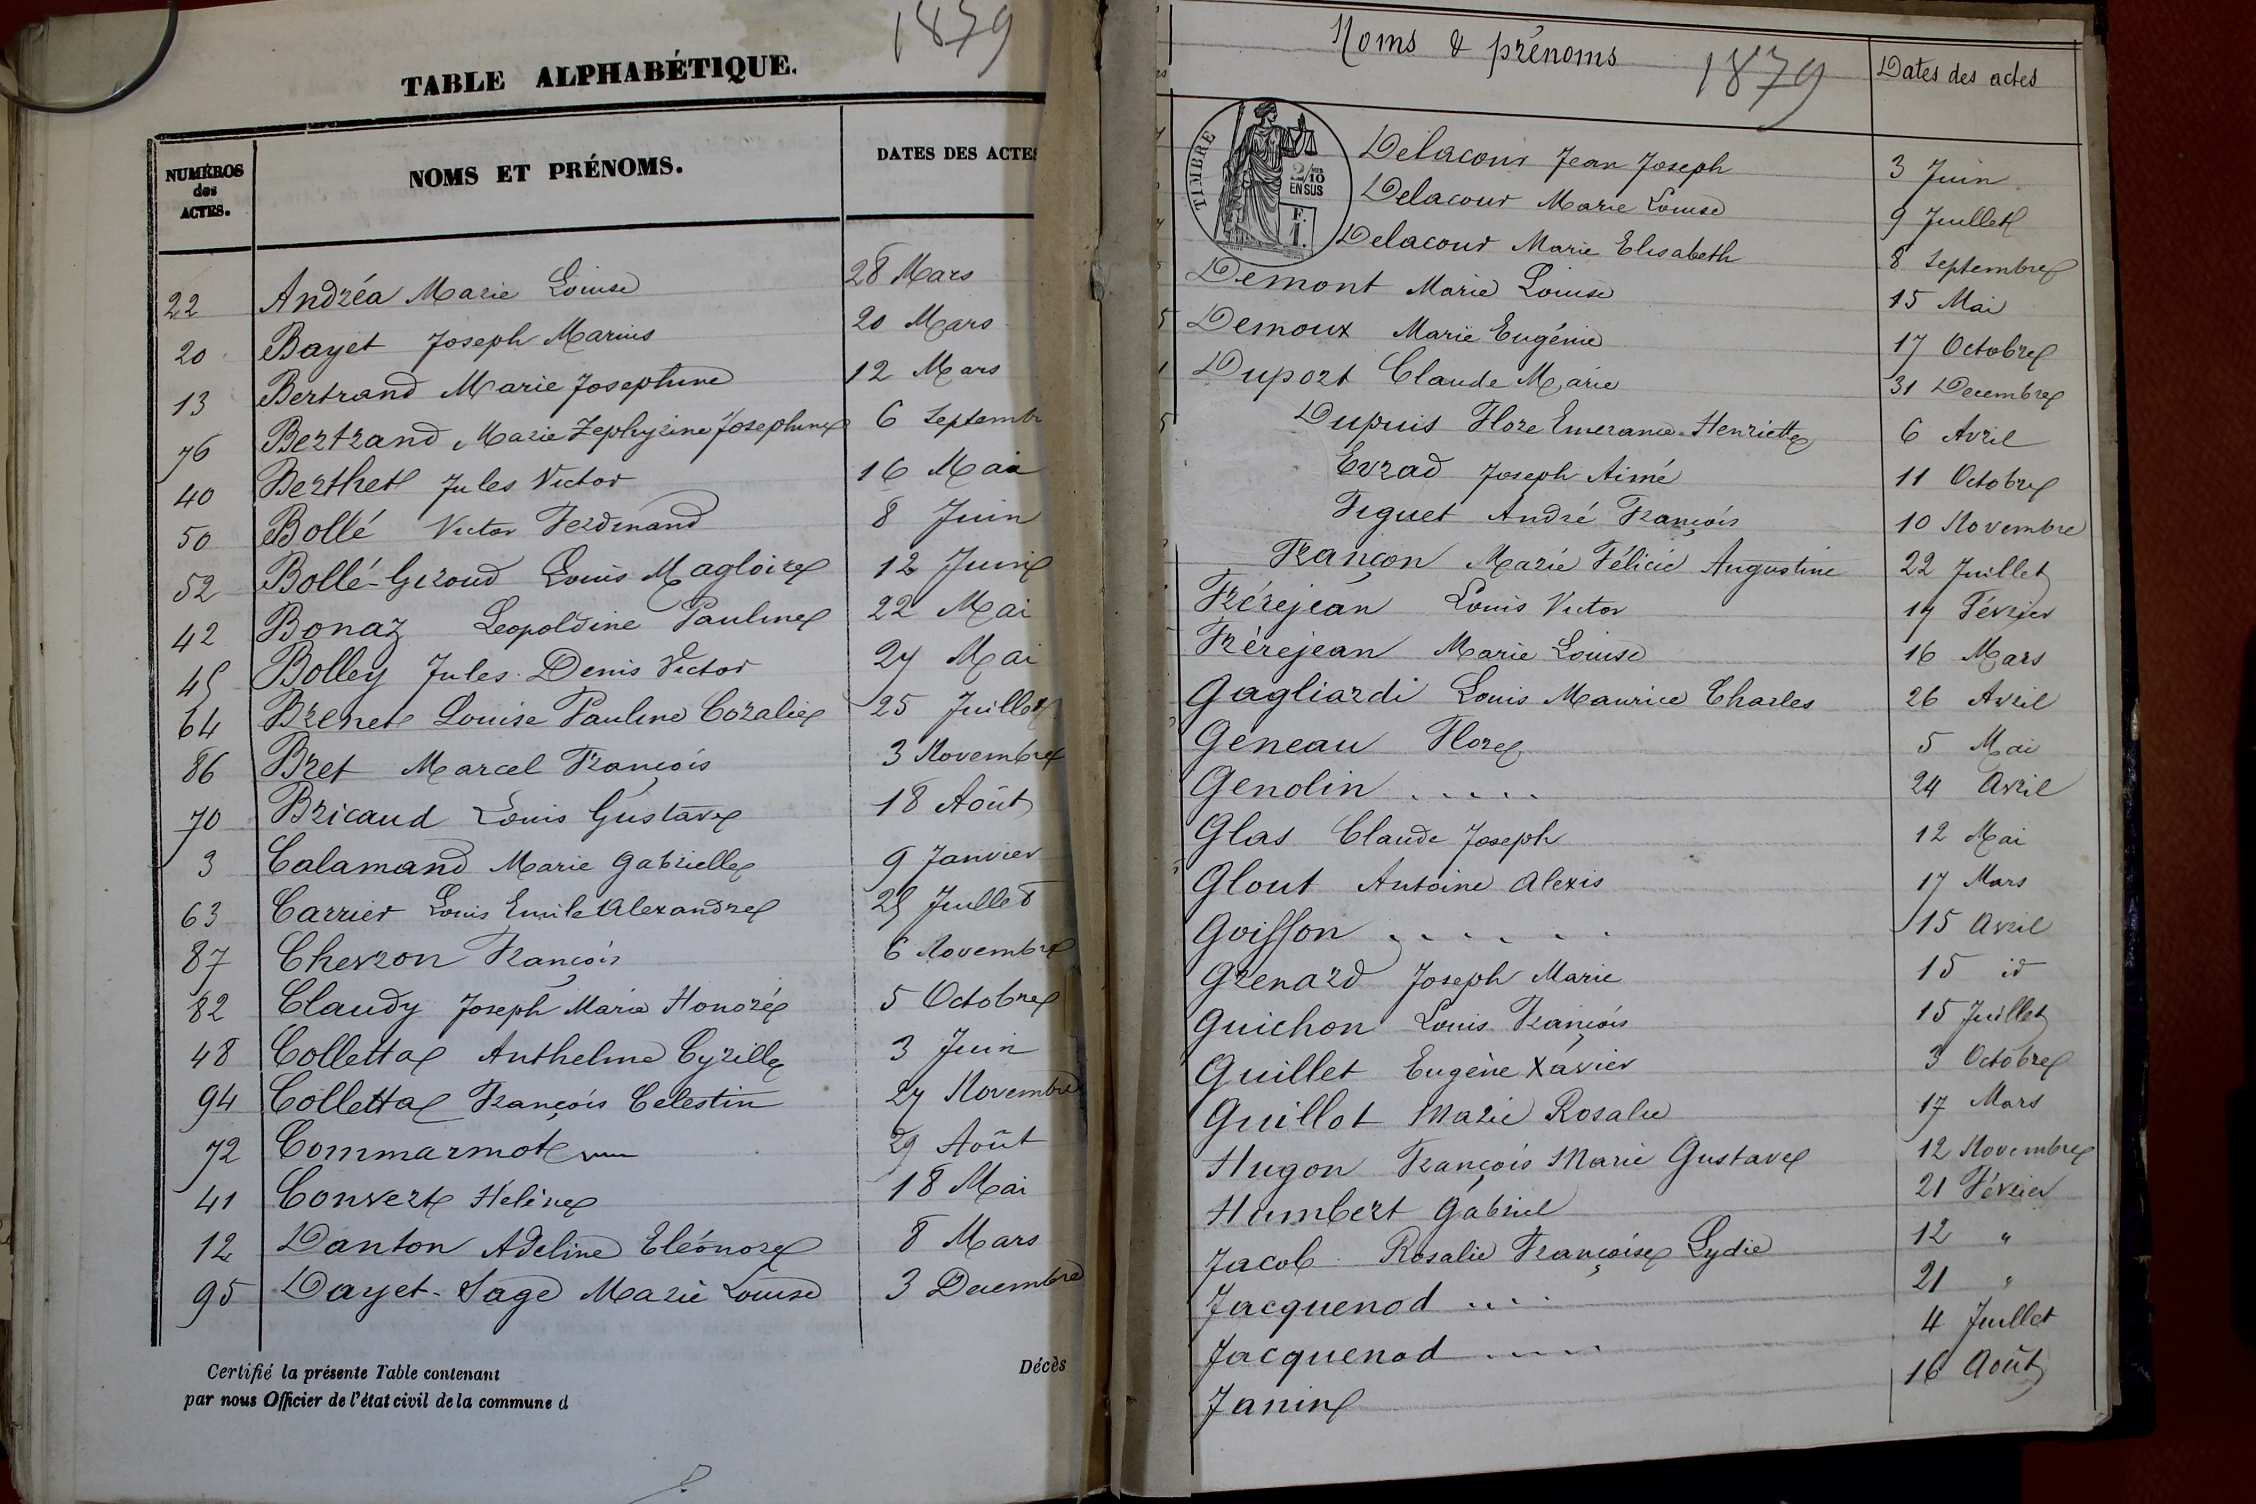 1879
TABLE ALPHABÉTIQUE.
NUMÉROS des ACTES. NOMS ET PRÉNOMS. DATES DES ACTES
22 Andréa Marie Louise 28 Mars
20 Bayet Joseph Marius 20 Mars
13 Bertrand Marie Josephine 12 Mars
76 Bertrand Marie Zephyrine Josephine 6 Septemb
40 Berthet Jules Victor 16 Mai
50 Bollé Victor Ferdinand 8 Juin
52 Bollé-Giroud Louis Magloire 12 Juin
42 Bonaz Leopoldine Pauline 22 Mai
45 Bolley Jules Denis Victor 27 Mai
64 Brenet Louise Pauline Coralie 25 Juillet
86 Bret Marcel François 3 Novembre
70 Bricaud Louis Gustave 18 Août
3 Calamand Marie Gabrielle 9 Janvier
63 Carrier Louis Emile Alexandre 25 Juillet
87 Chevron François 6 Novembre
82 Claudy Joseph Marie Honoré 5 Octobre
48 Colletta Anthelme Cyrille 3 Juin
94 Colletta François Celestin 27 Novembre
72 Commarmot 29 Août
41 Convert Hélène 18 Mai
12 Danton Adeline Eléonore 8 Mars
95 Dayet-Sage Marie Louise 3 Decembre
Certifié la présente Table contenant Décès
par nous Officier de l'état civil de la commune d
Noms & prénoms 1879 Dates des actes
TIMBRE 2/10 EN SUS F. 1.
Delacour Jean Joseph 3 Juin
Delacour Marie Louise 9 Juillet
Delacour Marie Elisabeth 8 Septembre
Demont Marie Louise 15 Mai
Demoux Marie Eugénie 17 Octobre
Duport Claude Marie 31 Decembre
Dupuis Flore Emerance Henriette 6 Avril
Evrad Joseph Aimé 11 Octobre
Figuet André François 10 Novembre
Françon Marie Félicie Augustine 22 Juillet
Frérejean Louis Victor 17 Février
Frérejean Marie Louise 16 Mars
Gagliardi Louis Maurice Charles 26 Avril
Geneau Flore 5 Mai
Genolin ..... 24 Avril
Glas Claude Joseph 12 Mai
Glout Antoine Alexis 17 Mars
Goiffon ...... 15 Avril
Grenard Joseph Marie 15 id
Guichon Louis François 15 Juillet
Guillet Eugène Xavier 3 Octobre
Guillot Marie Rosalie 17 Mars
Hugon François Marie Gustave 12 Novembre
Humbert Gabriel 21 Février
Jacob Rosalie Françoise Lydie 12 "
Jacquenod .... 21 "
Jacquenod ..... 4 Juillet
Janin 16 Août